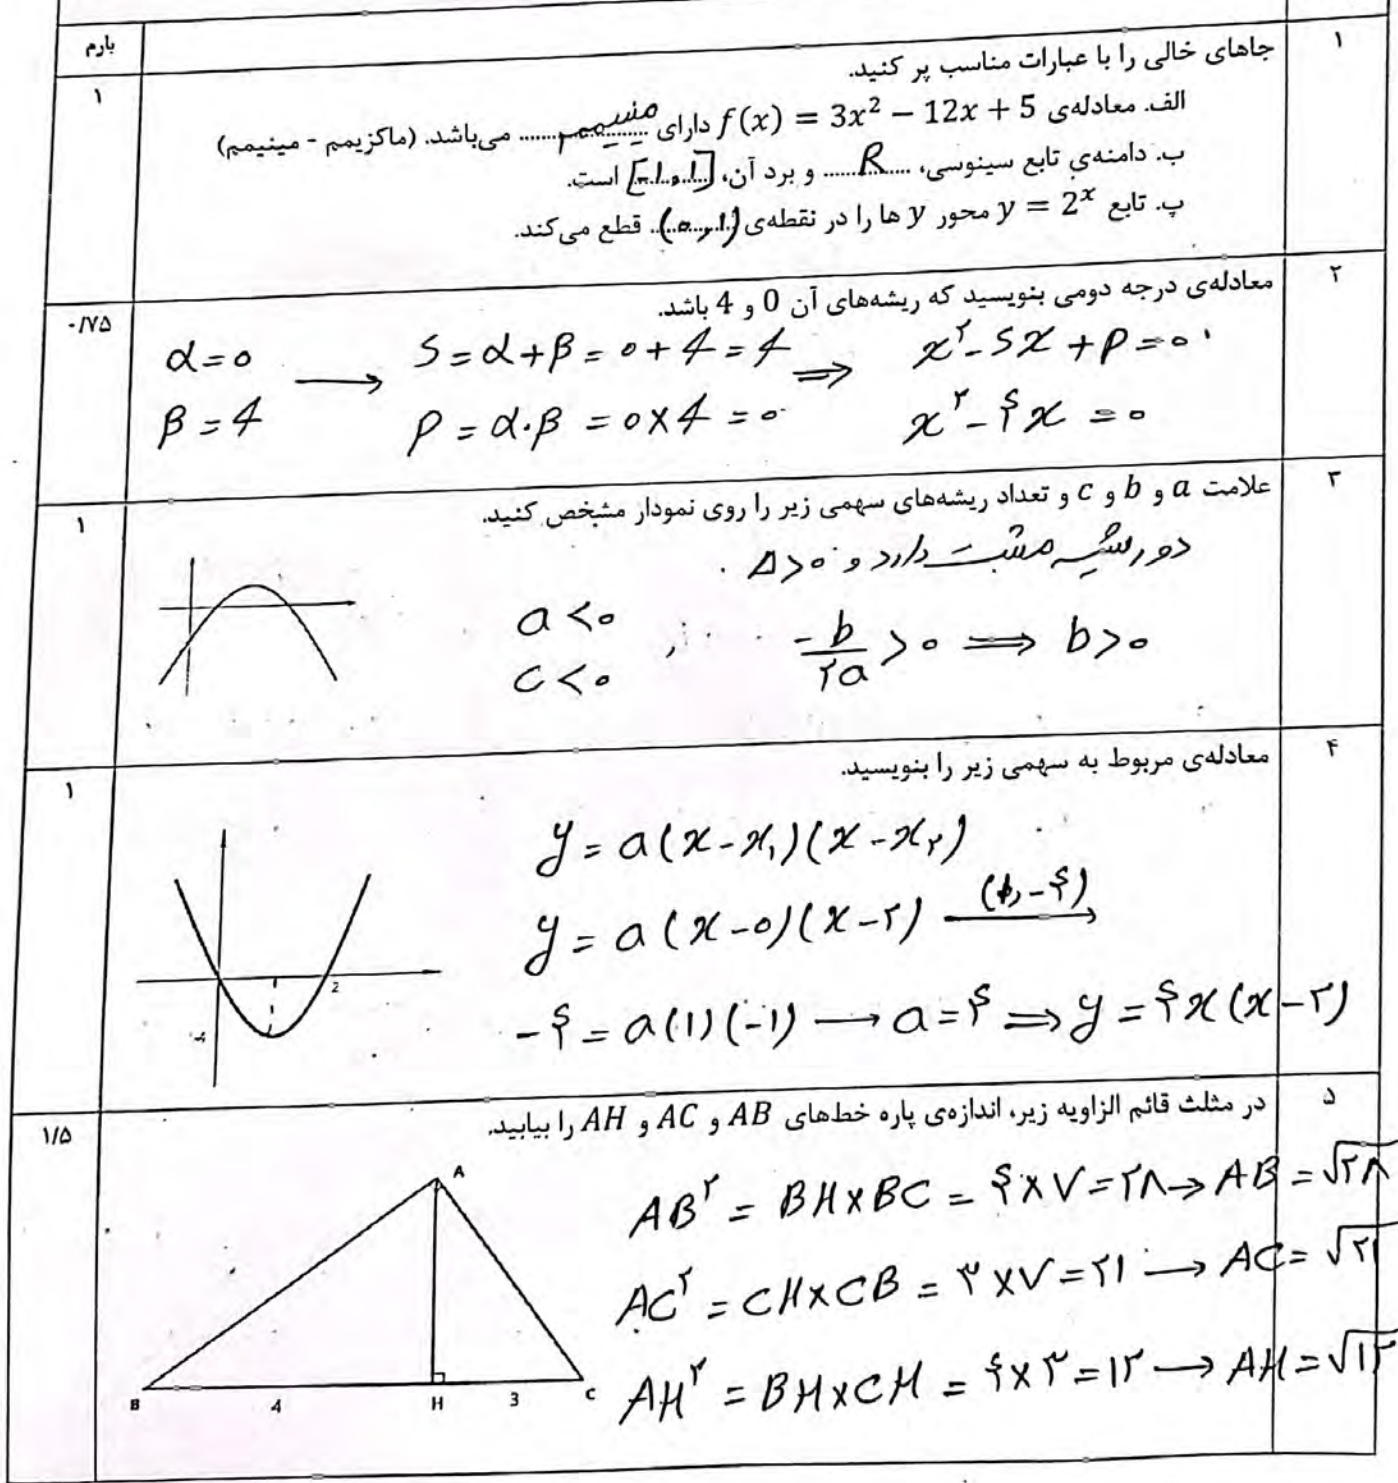 بارم
۱
جاهای خالی را با عبارات مناسب پر کنید.
۱
الف. معادله‌ی f(x) = 3x² − 12x + 5 دارای ..مینیمم.. می‌باشد. (ماکزیمم - مینیمم)
ب. دامنه‌ی تابع سینوسی، ...R... و برد آن، [-۱,۱] است.
پ. تابع y = 2ˣ محور y ها را در نقطه‌ی (۰,۱) قطع می‌کند.
۲
معادله‌ی درجه دومی بنویسید که ریشه‌های آن 0 و 4 باشد.
۰/۷۵
α=0 → S=α+β=0+4=4 ⇒ x²-Sx+P=0
β=4 P=α.β=0×4=0 x²-۴x=0
۳
علامت a و b و c و تعداد ریشه‌های سهمی زیر را روی نمودار مشخص کنید.
۱
دو ریشه مثبت دارد و Δ>0
a<0 , -b/۲a >0 ⇒ b>0
c<0
۴
معادله‌ی مربوط به سهمی زیر را بنویسید.
۱
y=a(x-x₁)(x-x₂)
y=a(x-0)(x-۲) (۱,-۴) →
-۴=a(۱)(-۱) → a=۴ ⇒ y=۴x(x-۲)
2
-4
۵
در مثلث قائم الزاویه زیر، اندازه‌ی پاره خط‌های AB و AC و AH را بیابید.
۱/۵
AB²=BH×BC=۴×۷=۲۸→AB=√۲۸
AC²=CH×CB=۳×۷=۲۱→AC=√۲۱
AH²=BH×CH=۴×۳=۱۲→AH=√۱۲
A
B 4 H 3 C